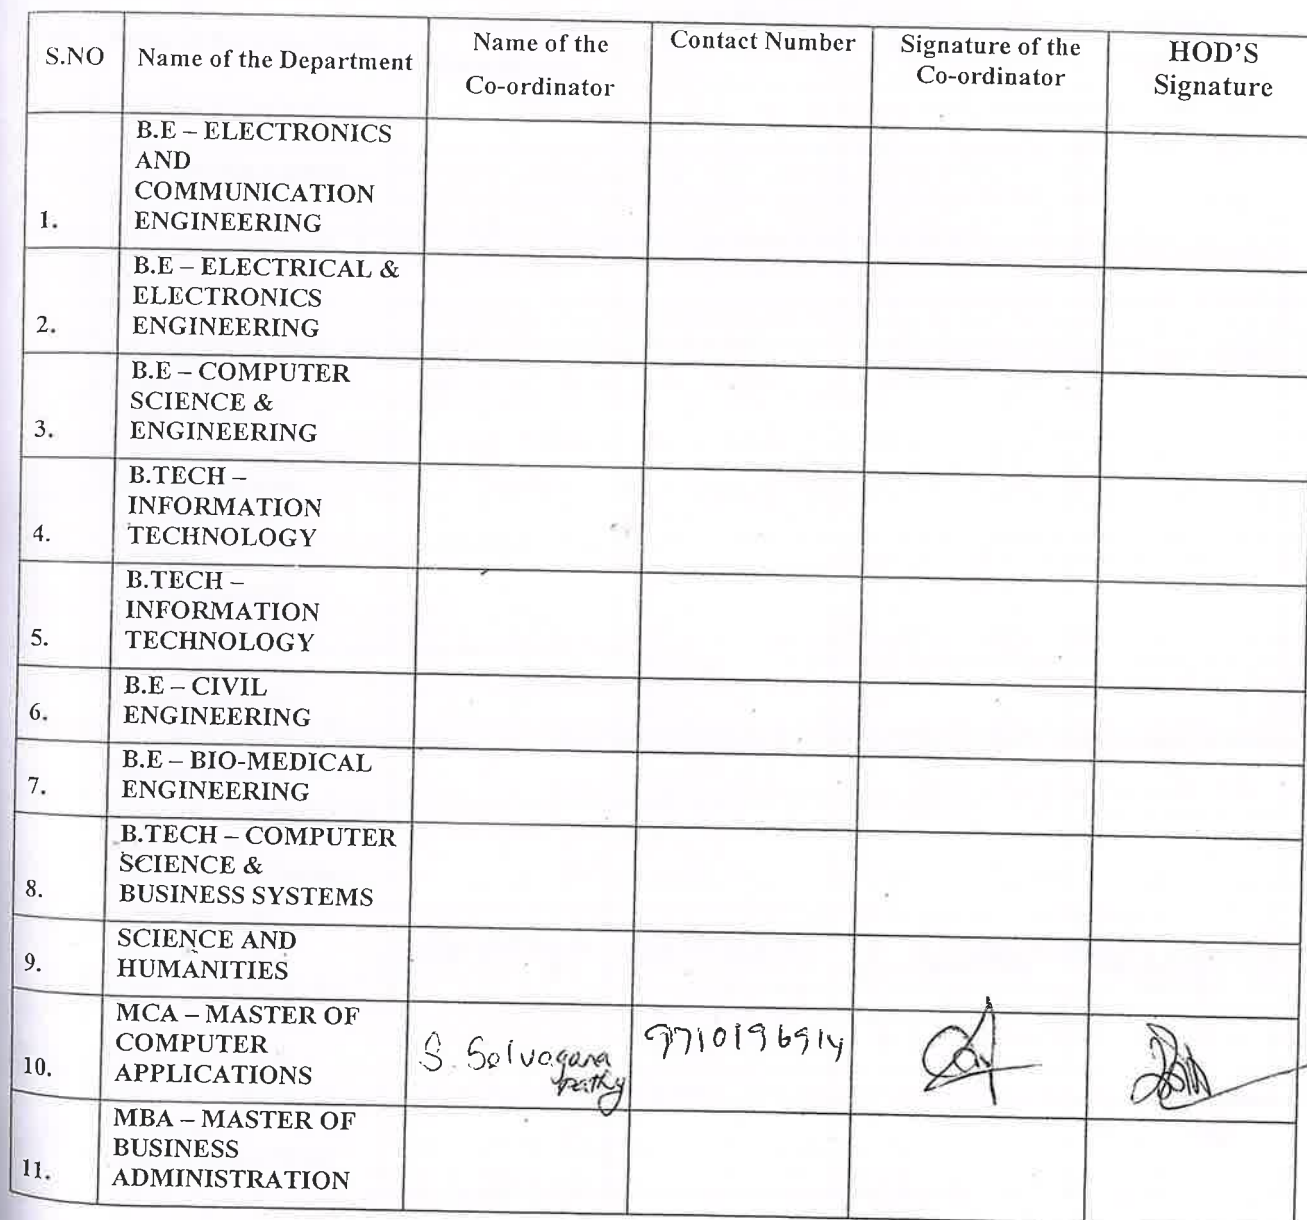 S.NO
Name of the Department
Name of the
Co-ordinator
Contact Number
Signature of the
Co-ordinator
HOD'S
Signature
1.
B.E – ELECTRONICS
AND
COMMUNICATION
ENGINEERING
2.
B.E – ELECTRICAL &
ELECTRONICS
ENGINEERING
3.
B.E – COMPUTER
SCIENCE &
ENGINEERING
4.
B.TECH –
INFORMATION
TECHNOLOGY
5.
B.TECH –
INFORMATION
TECHNOLOGY
6.
B.E – CIVIL
ENGINEERING
7.
B.E – BIO-MEDICAL
ENGINEERING
8.
B.TECH – COMPUTER
SCIENCE &
BUSINESS SYSTEMS
9.
SCIENCE AND
HUMANITIES
10.
MCA – MASTER OF
COMPUTER
APPLICATIONS
S. Selvagana
pathy
9710196914
11.
MBA – MASTER OF
BUSINESS
ADMINISTRATION